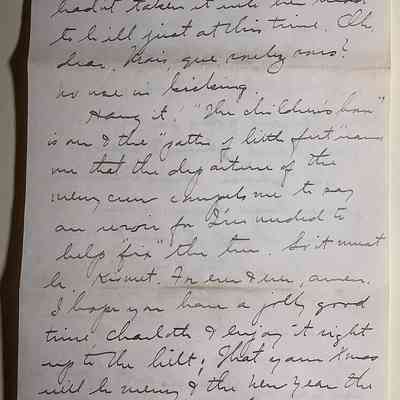 hadn't taken it into her head
to be ill just at this time. Oh,
dear. Mais, que voulez vous?
No use in kicking.
Hang it! "The children's hour"
is on & the "patter of little feet" warns
me that the departure of the
merry crew compels me to say
au revoir for I'm needed to
help "fix" the tree. So it must
be. Kismet. For ever & ever, amen.
I hope you have a jolly good
time, Charlotte & enjoy it right
up to the hilt; That your Xmas
will be merry & the New Year the